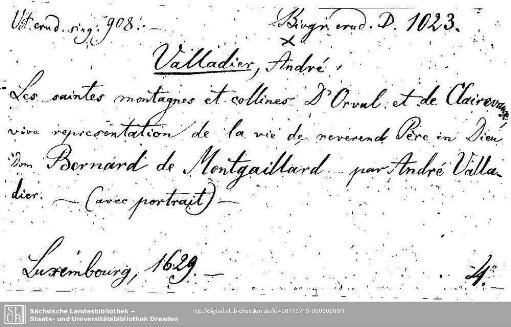 Vit. erud. sing. 908. Biogr. erud. D. 1023.
Valladier, André.
Les saintes montagnes et collines D'Orval et de Clairevaux,
vive representation de la vie de reverend Père en Dieu
Dom Bernard de Montgaillard par André Valla-
dier. — (avec portrait) —
Luxembourg, 1629. — 4.°
Sächsische Landesbibliothek –
Staats- und Universitätsbibliothek Dresden